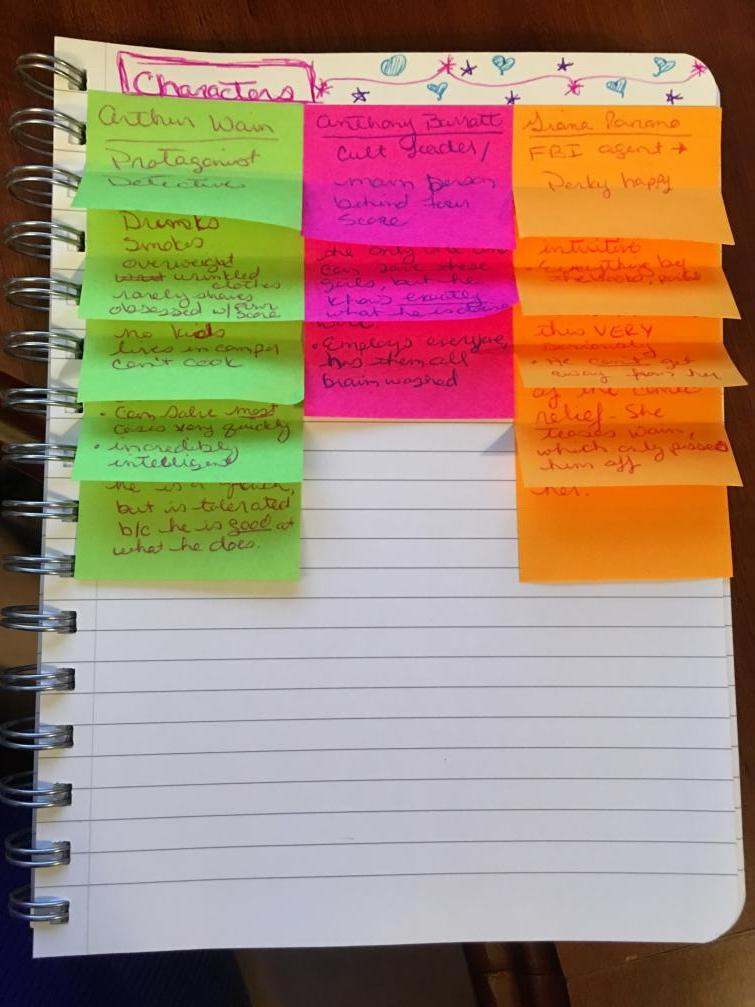 Characters
Arthur Wain
Protagonist
Detective
Drinks
Smokes
overweight
wrinkled
clothes
rarely shaves
obsessed w/
Score
no kids
lives in camper
can't cook
• Can solve most
cases very quickly
• incredibly
intelligent
he is a
but is tolerated
b/c he is good at
what he does.
Anthony Barratt
Cult leader/
main person
behind four
Score
the only one
can save these
girls, but he
knows exactly
what he is doing
• Employs everyone,
has them all
brain washed
FBI agent →
Perky happy
intuitive
• Everything by
the book,
this VERY
seriously
• He can't get
away from her
of the comic
relief - She
teases Wain,
which only pisses
him off
her.